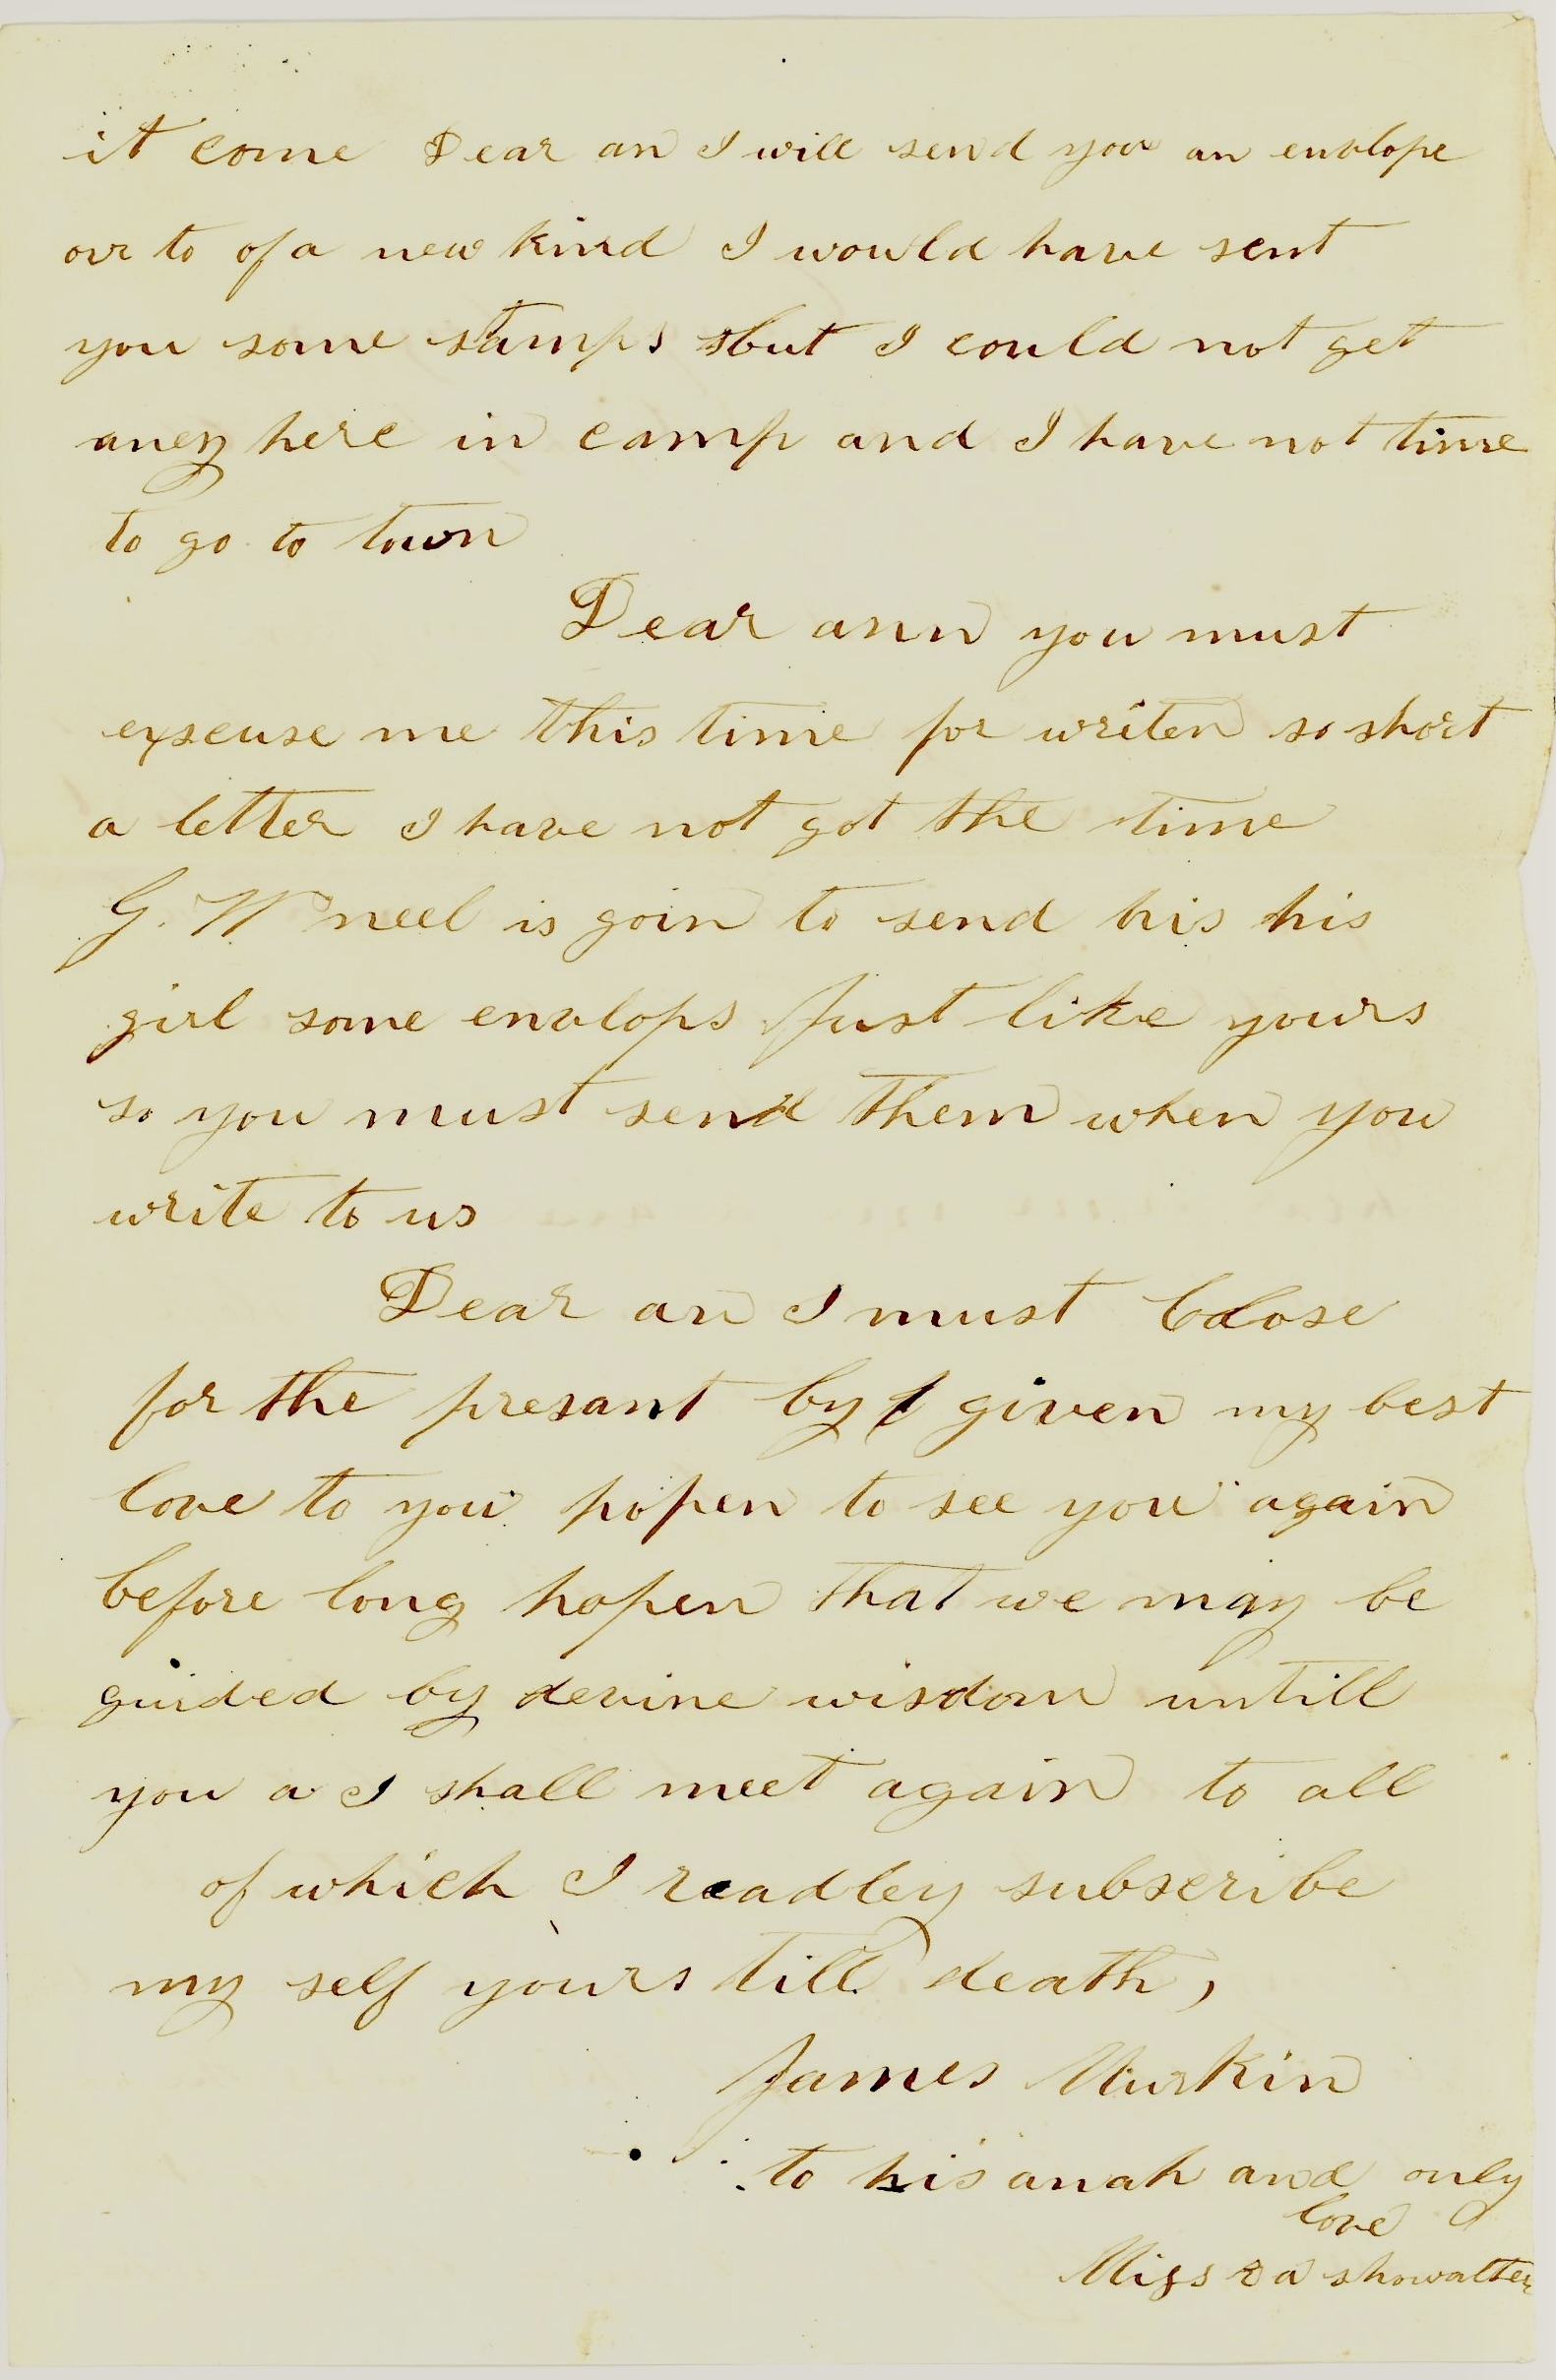 it come Dear an I will send you an envlope
our to of a new kind I would have sent
you some stamps but I could not get
aney here in camp and I have not time
to go to town
Dear ann you must
exscuse me this time for writen so short
a letter I have not got the time
G. W neel is goin to send his his
girl some envlops Just like yours
so you must send them when you
write to us
Dear an I must Close
for the presant by given my best
love to you hopen to see you again
before long hopen that we may be
guided by devine wisdom untill
you a I shall meet again to all
of which I readley subscribe
my self yours till death,
James Murkin
to his anah and only
love
Miss r a showalter